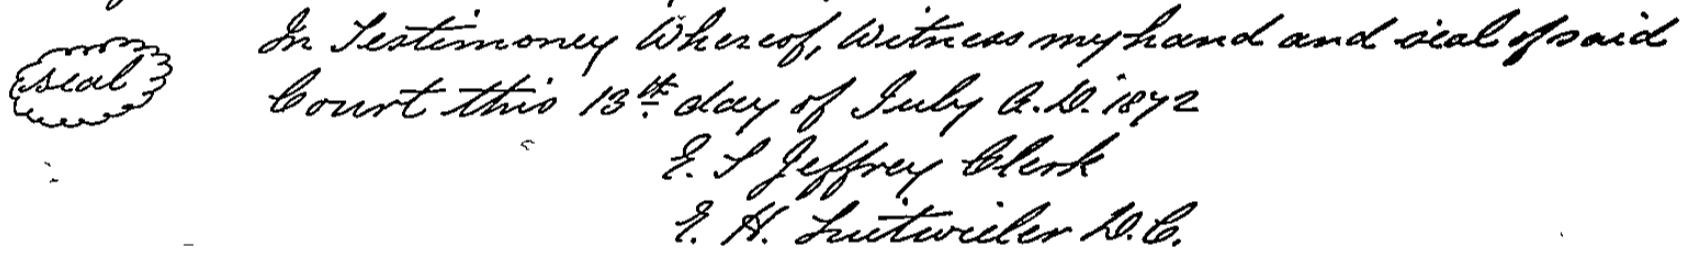 In Testimoney Whereof, Witness my hand and seal of said
seal
Court this 13th. day of July A.D. 1872
E. S Jeffrey Clerk
E. H. Luitwieler D.C.